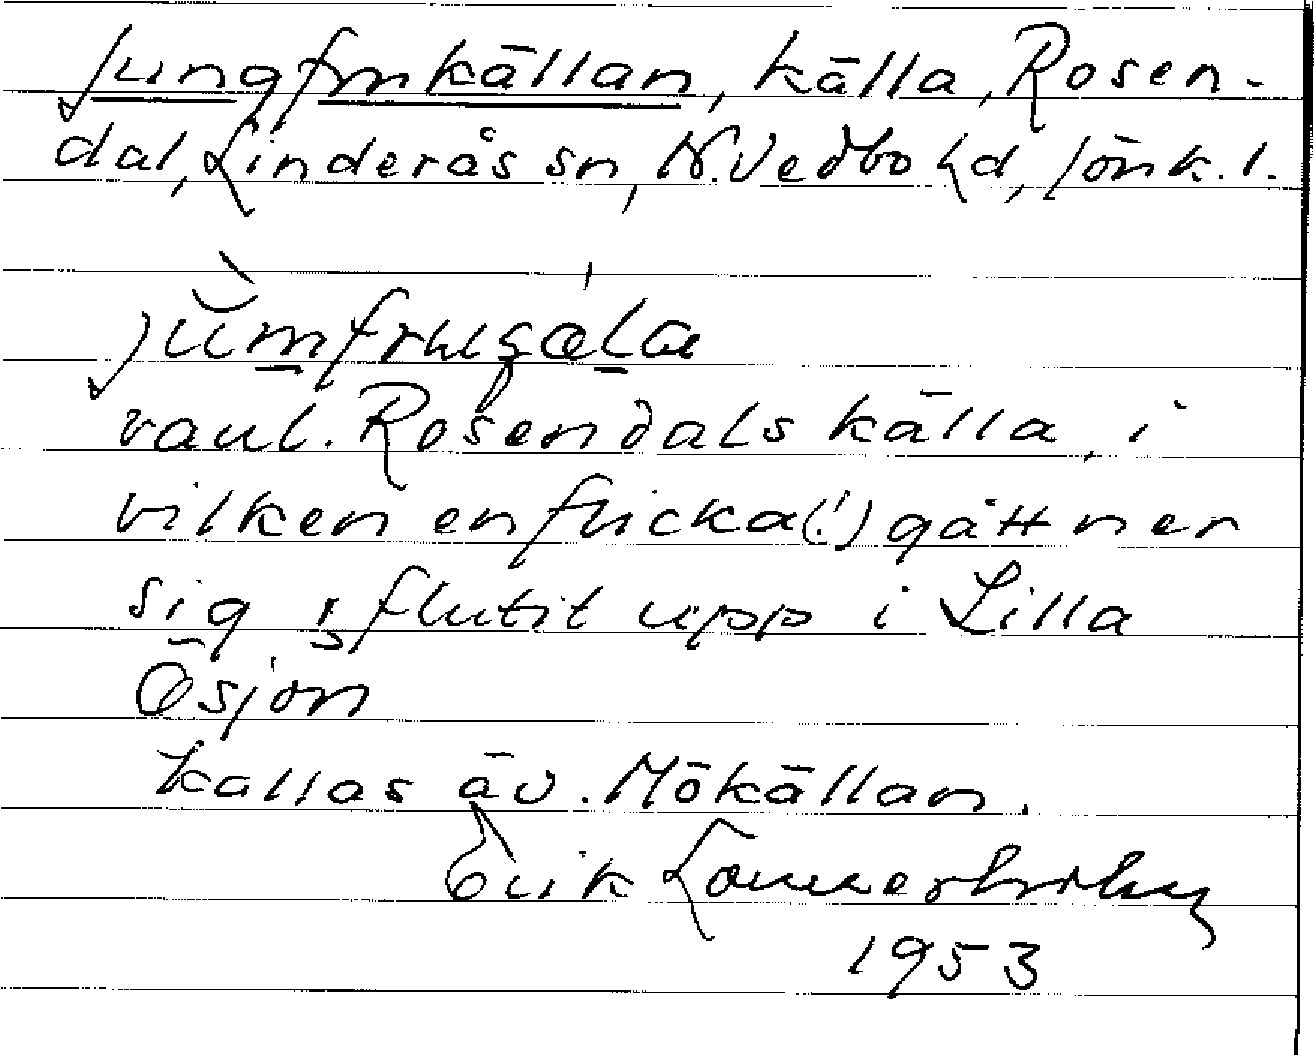 Jungfrukällan, källa, Rosen-
dal, Linderås sn, N. Vedbo hd, Jönk. l.
vanl. Rosendals källa, i
vilken en flicka (!) gått ner
sig, flutit upp i Lilla
Ösjön
kallas äv. Mökällan.
Erik
1953